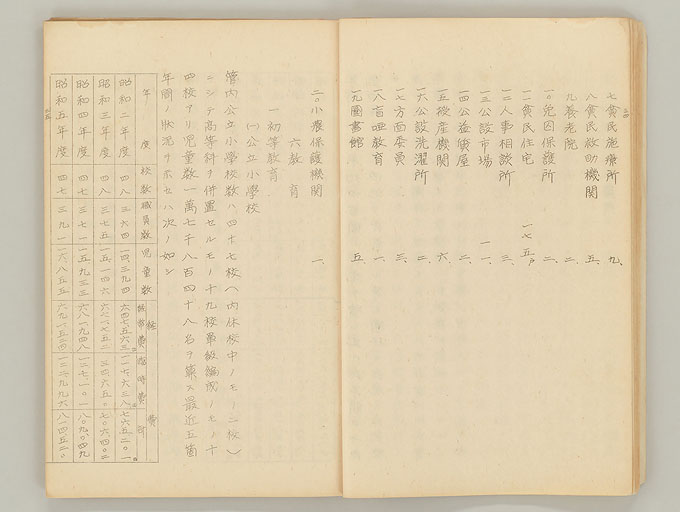 七貧民施療所 九、
八貧民救助機関 五、
九養老院 二、
一〇免囚保護所 二、
一一貧民住宅 一七五戸
一二人事相談所 三、
一三公設市場 一一、
一四公益質屋 二、
一五授産機関 六、
一六公設洗濯所 二、
一七方面委員 三、
一八盲唖教育 一、
一九図書館 五、
二〇小農保護機関 一、
六教育
一初等教育
㈠公立小学校
管内公立小学校数ハ四十七校(内休校中ノモノ二校)
ニシテ高等科ヲ併置セルモノ十九校単級編成ノモノ十
四校アリ児童数一萬七千八百四十八名ヲ算ス最近五箇
年間ノ状況ヲ示セハ次ノ如シ
年度 校数 職員数 児童数 経費 経常費 臨時費 計
昭和二年度 四八 三六四
昭和三年度 四八 三七五
昭和四年度 四七
昭和五年度 四七 三九一 一六八五五